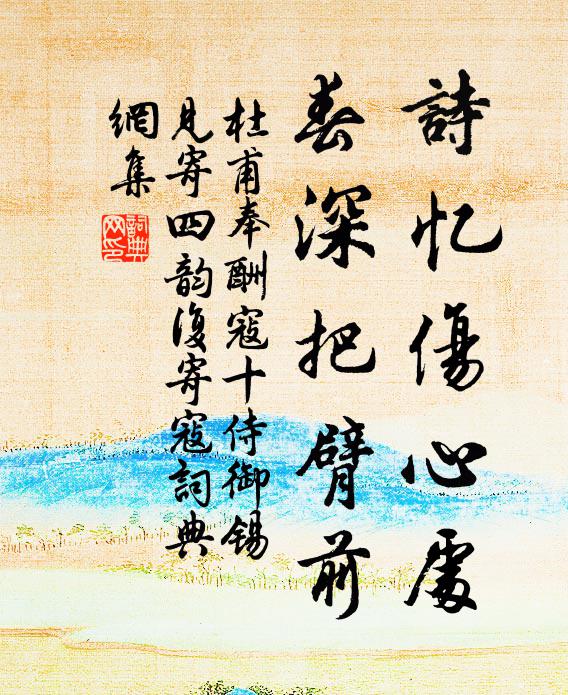 詩忆傷心處
春深把臂前
杜甫奉酬寇十侍御锡
見寄四韵復寄寇詞典
網集
詞典
网印